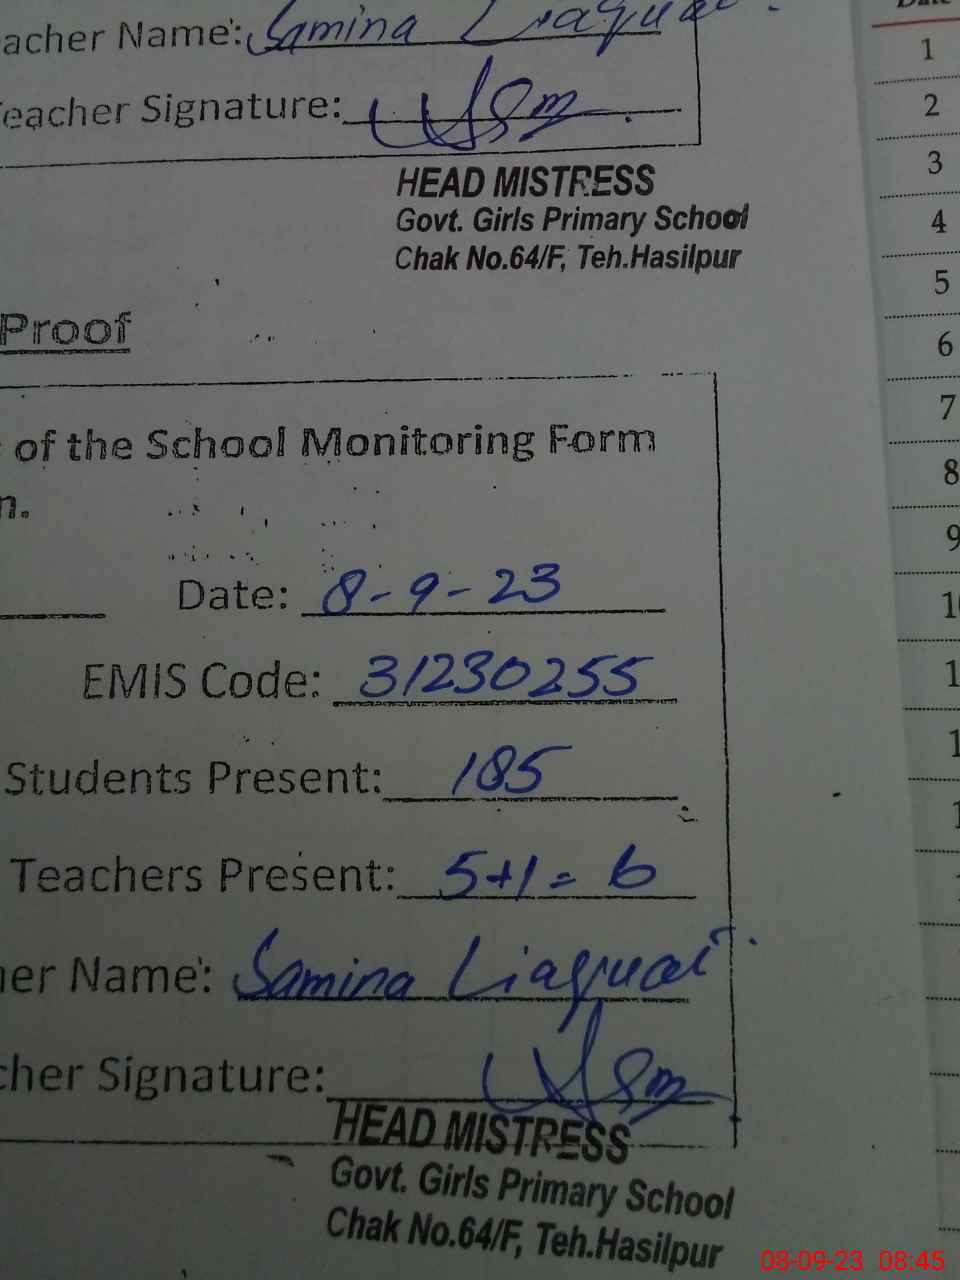 acher Name: Samina Liaquat
Teacher Signature:
HEAD MISTRESS
Govt. Girls Primary School
Chak No.64/F, Teh.Hasilpur
Proof
of the School Monitoring Form
n.
Date: 8-9-23
EMIS Code: 31230255
Students Present: 185
Teachers Present: 5+1= 6
her Name: Samina Liaquat
cher Signature:
HEAD MISTRESS
Govt. Girls Primary School
Chak No.64/F, Teh.Hasilpur
1
2
3
4
5
6
7
8
9
08-09-23 08:45